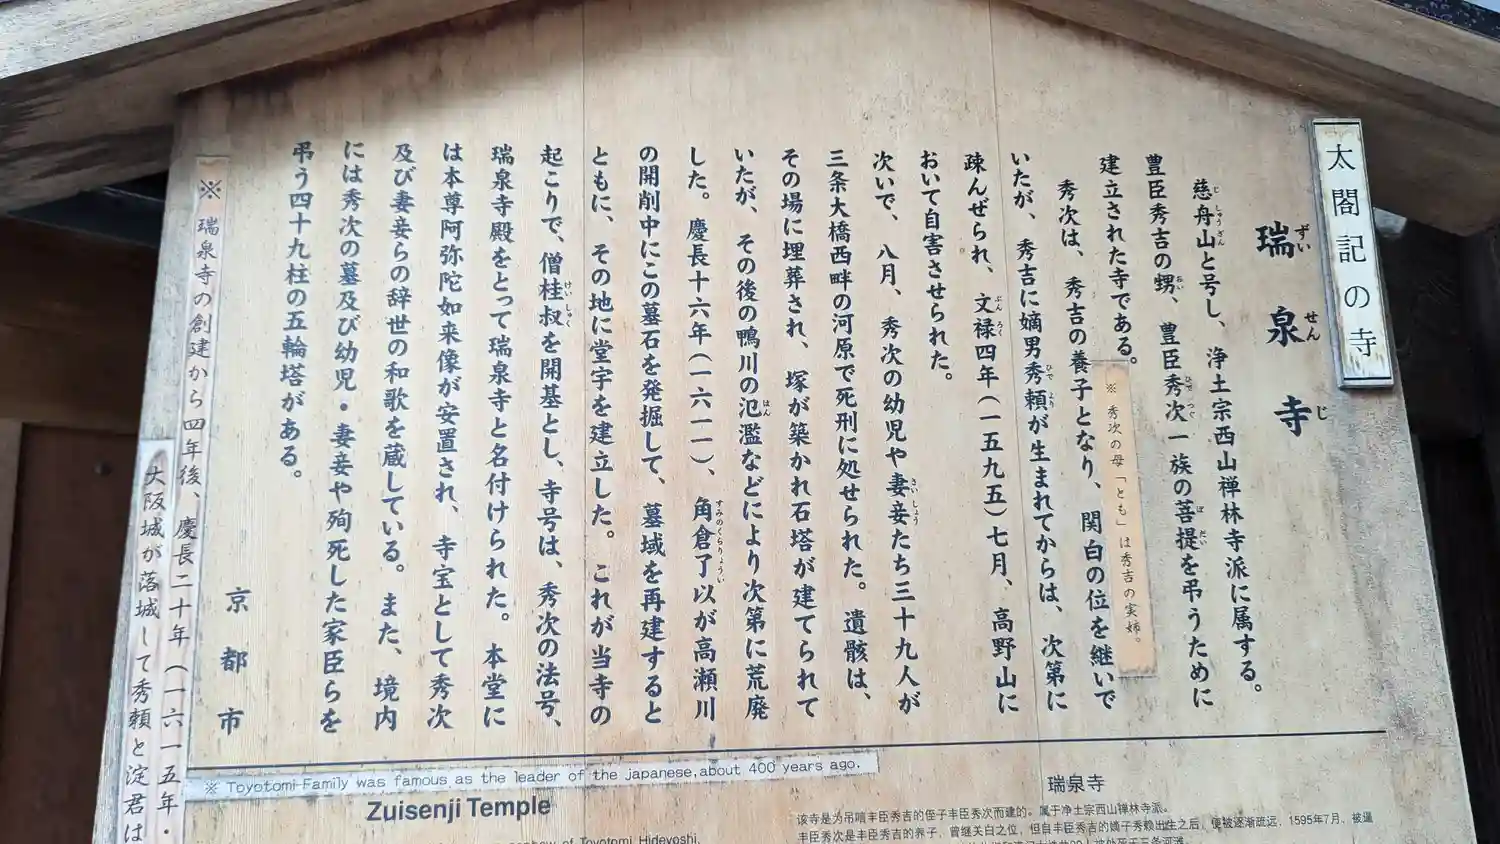 太閤記の寺
瑞泉寺
ずいせんじ
慈舟山と号し、浄土宗西山禅林寺派に属する。
じしゅうざん
豊臣秀吉の甥、豊臣秀次一族の菩提を弔うために
おい
ひでつぐ
ぼだい
建立された寺である。
※ 秀次の母「とも」は秀吉の実姉。
秀次は、秀吉の養子となり、関白の位を継いで
いたが、秀吉に嫡男秀頼が生まれてからは、次第に
ひでより
疎んぜられ、文禄四年(一五九五)七月、高野山に
ぶんろく
おいて自害させられた。
次いで、八月、秀次の幼児や妻妾たち三十九人が
さいしょう
三条大橋西畔の河原で死刑に処せられた。遺骸は、
その場に埋葬され、塚が築かれ石塔が建てられて
いたが、その後の鴨川の氾濫などにより次第に荒廃
はん
した。慶長十六年(一六一一)、角倉了以が高瀬川
すみのくらりょうい
の開削中にこの墓石を発掘して、墓域を再建すると
ともに、その地に堂宇を建立した。これが当寺の
起こりで、僧桂叔を開基とし、寺号は、秀次の法号、
けいしゅく
瑞泉寺殿をとって瑞泉寺と名付けられた。本堂に
は本尊阿弥陀如来像が安置され、寺宝として秀次
及び妻妾らの辞世の和歌を蔵している。また、境内
には秀次の墓及び幼児・妻妾や殉死した家臣らを
弔う四十九柱の五輪塔がある。
京都市
※ 瑞泉寺の創建から四年後、慶長二十年(一六一五年・
大阪城が落城して秀頼と淀君は
※ Toyotomi Family was famous as the leader of the japanese,about 400 years ago.
Zuisenji Temple
of Toyotomi Hideyoshi,
瑞泉寺
该寺是为吊唁丰臣秀吉的侄子丰臣秀次而建的。属于净土宗西山禅林寺派。
丰臣秀次是丰臣秀吉的养子，曾继关白之位，但自丰臣秀吉的嫡子秀赖出生之后，便被逐渐疏远，1595年7月，被逼